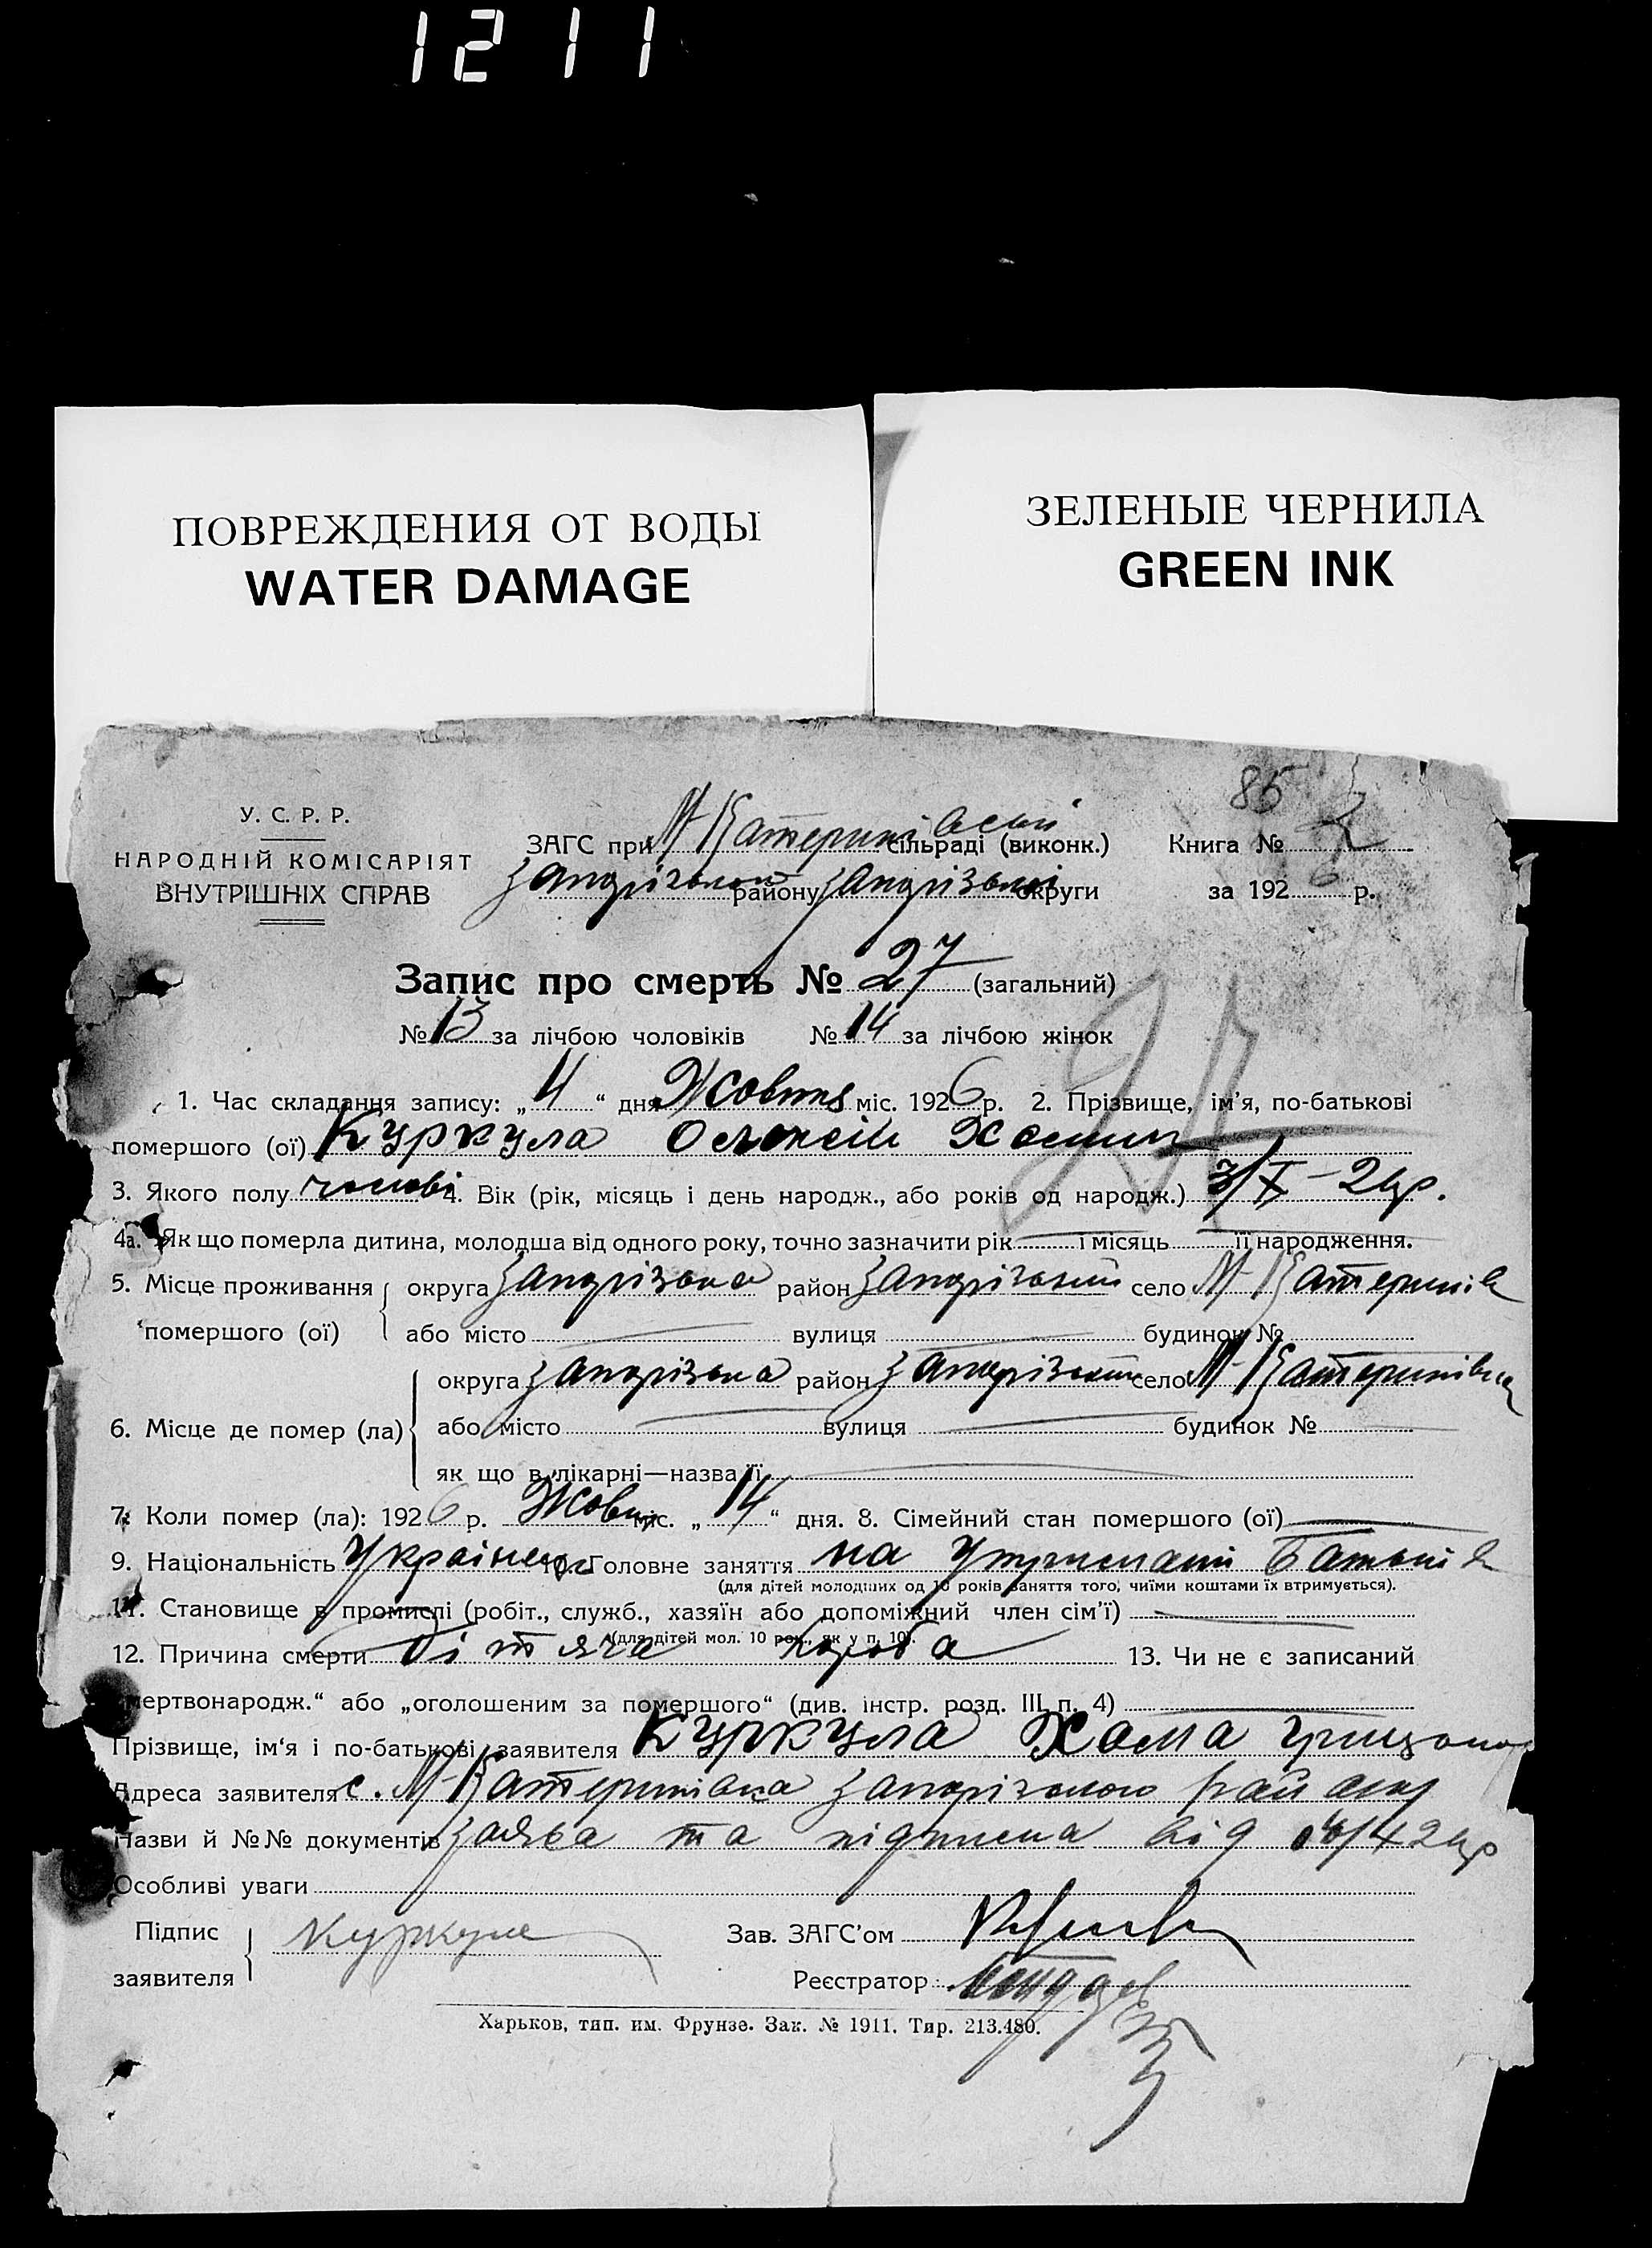 1211
ПОВРЕЖДЕНИЯ ОТ ВОДЫ
WATER DAMAGE
ЗЕЛЕНЫЕ ЧЕРНИЛА
GREEN INK
85
У. С. Р. Р.
НАРОДНІЙ КОМІСАРІЯТ
ВНУТРІШНІХ СПРАВ
ЗАГС при М-Катеринівській сільраді (виконк.)
району округи
Книга №
за 1926 р.
Запис про смерть № 27 (загальний)
№ 13 за лічбою чоловіків № 14 за лічбою жінок
27
1. Час складання запису: „ 4 “ дня Жовтня міс. 1926 р. 2. Прізвище, ім’я, по-батькові
помершого (ої) Куркула Олексій Хомич
3. Якого полу чолові 4. Вік (рік, місяць і день народж., або років од народж.) 3/X-24р.
4а. Як що померла дитина, молодша від одного року, точно зазначити рік і місяць її народження.
5. Місце проживання помершого (ої) округа Запорізька район Запорізький село М-Катеринів
або місто вулиця будинок №
6. Місце де помер (ла) округа Запорізька район Запорізький село М-Катеринівка
або місто вулиця будинок №
як що в лікарні—назва її
7. Коли помер (ла): 1926 р. Жовтн міс. „ 14 “ дня. 8. Сімейний стан помершого (ої)
9. Національність Українец 10. Головне заняття на Утриманні Батьків
(для дітей молодших од 10 років заняття того, чиїми коштами їх втримується).
11. Становище в промислі (робіт., служб., хазяїн або допоміжний член сім’ї)
(для дітей мол. 10 рок., як у п. 10).
12. Причина смерти Дітяча хороба 13. Чи не є записаний
„мертвонародж.“ або „оголошеним за помершого“ (див. інстр. розд. III п. 4)
Прізвище, ім‘я і по-батькові заявителя Куркула Хома
Адреса заявителя с. М-Катеринівка Запорізького рай
Назви й №№ документів Заява та від
Особливі уваги
Підпис заявителя Куркула
Зав. ЗАГС’ом
Реєстратор
Харьков, тип. им. Фрунзе. Зак. № 1911. Тир. 213.480.